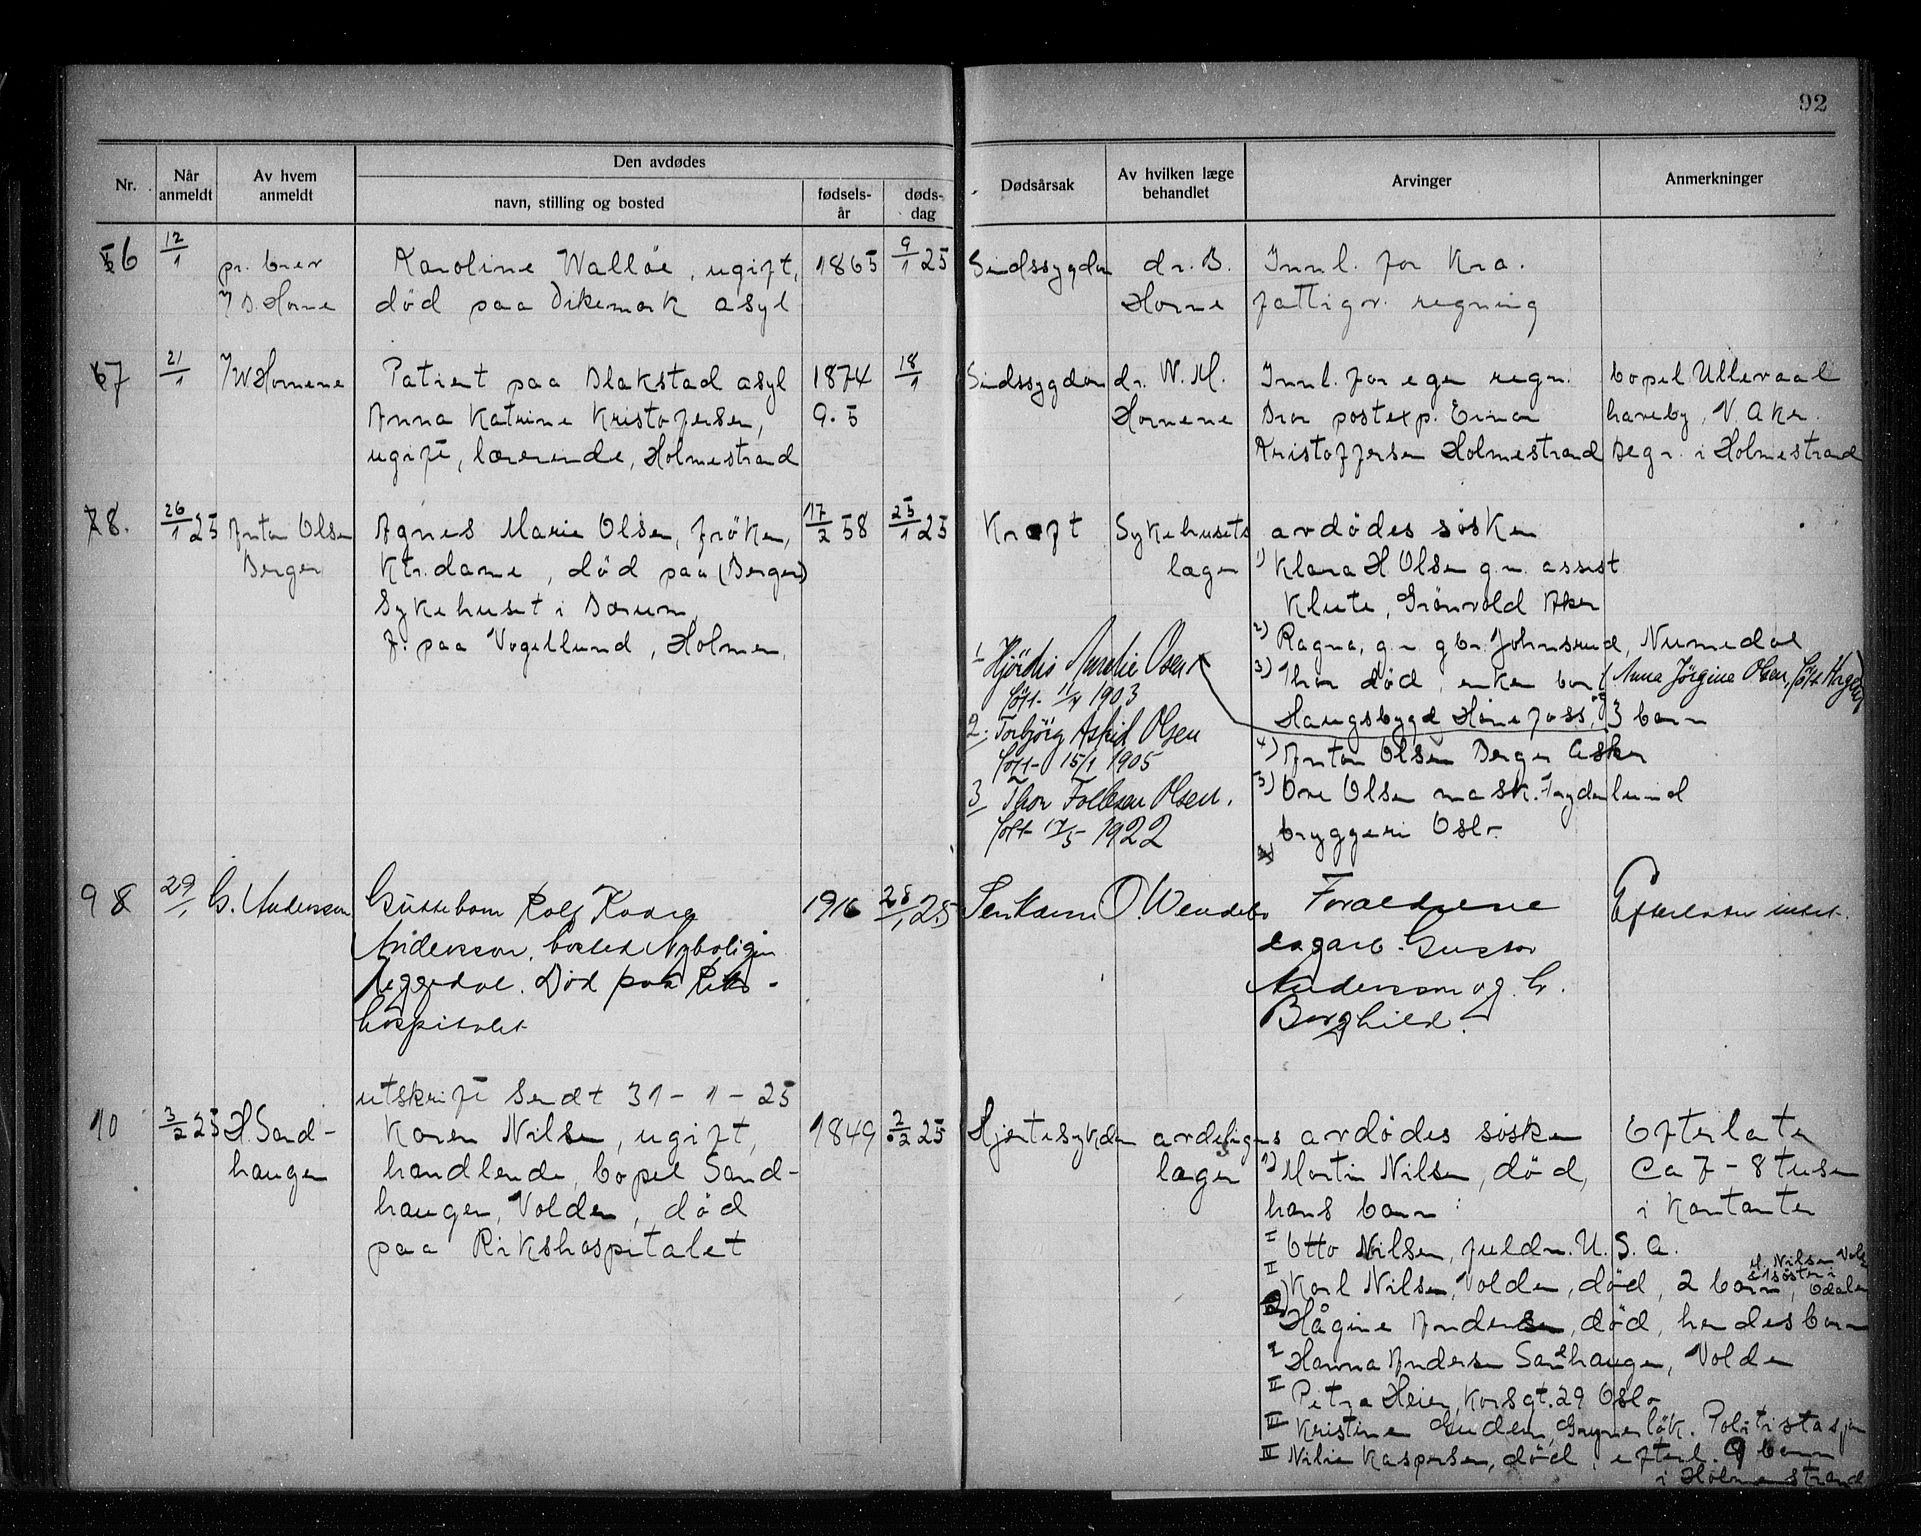 92
Nr.
Når anmeldt
Av hvem anmeldt
Den avdødes
navn, stilling og bosted
fødsels-år
døds-dag
Dødsårsak
Av hvilken læge behandlet
Arvinger
Anmerkninger
6 12/1 pr. brev Karoline Walløe, ugift, 1865 9/1 25 Sindssygdom dr. B. Innl. for Kra.
død paa Dikemark asyl Horne fattigv. regning
7 21/1 Patient paa Blakstad asyl 1874 18/1 Sindssygdom dr. W. M. Innl. for egen regn. bopel Ullevaal
Anna Katrine Kristofersen, 9.5 Hornene Bror postexp. Einar haveby, V. Aker.
ugift, lærerinde, Holmestrand Kristoffersen Holmestrand Begr. i Holmestrand
8. 26/1 25 Anton Olsen Agnes Marie Olsen, frøken, 17/2 58 25/1 25 Kreft Sykehusets avdødes søsken
Berger Ktr. dame, død paa (Berger) læger 1) Klara H Olsen g.m. assist
Sykehuset i Bærum, Klute, Grønvold Aker
f. paa Vogellund, Holmen. 2) Ragna, g.m. gbr. Johnsrud, Numedal
3) Thor død, enke bor (Anna Jørgine Olsen, født
Haugsbygd Hønefoss, og 3 barn
4) Anton Olsen Berger Asker
5) Ove Olsen mask. Frydenlund
bryggeri Oslo
1. Hjørdis Amalie Olsen
født 11/4 1903
2. Torbjørg Astrid Olsen
født 15/1 1905
3 Thor Olsen.
født 17/5 1922
9 29/1 G. Andersson Guttebarn Rolf Kaare 1916 28/1 25 O. Wendelbo Forældrene Efterlater intet.
Andersson, bosted Nyboligen dagarb. Gustav
Heggedal. Død paa Riks- Andersson og h.
hospitalet Borghild.
utskrift sendt 31-1-25
10 3/2 25 H. Sand- Karen Nilsen, ugift, 1849 2/2 25 Hjertesykdom avdelingens avdødes søsken Efterlater
haugen handlende, bopel Sand- læger 1) Martin Nilsen, død, Ca 7-8 tusen
haugen, Volden, død hans barn: i Kontanter
paa Rikshospitalet I Otto Nilsen, fuldm. U.S.A.
II Karl Nilsen, Volden, død, 2 barn, H. Nilsen
1 søster i Odalen
2) Hågine Andersen, død, hendes barn
I Hanna Andersen Sandhaugen, Volden
II Petra Heier, Korsgt. 29 Oslo
III Kristine Gudem, Grünerløk. Politistasjon
IV Nilia Kaspersen, død, efterl. 9 barn
i Holmenstrand